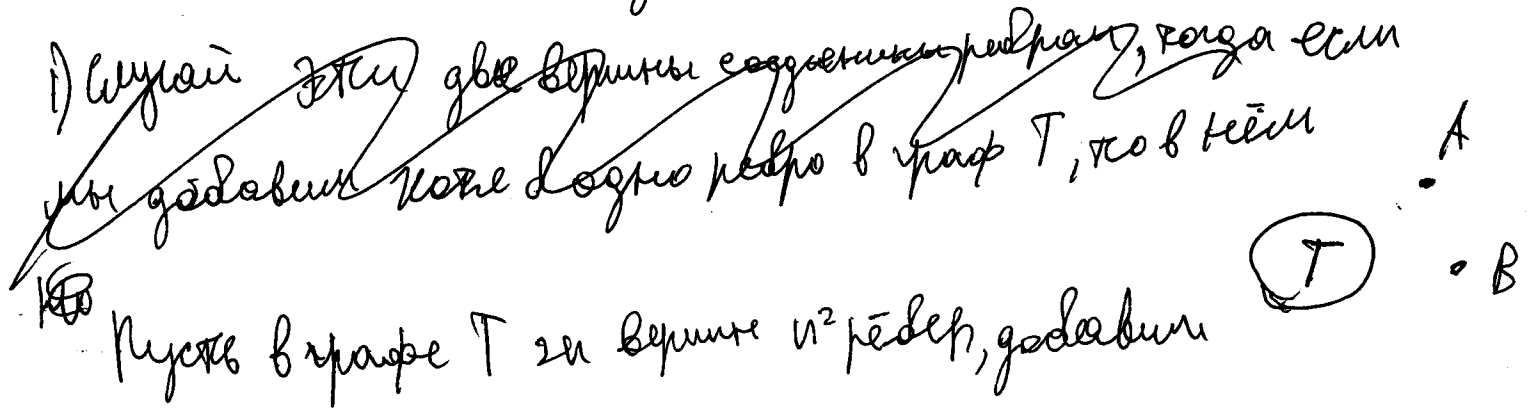 1) Случай эти две вершины соединены ребром, тогда если
мы добавим хотя б одно ребро в граф T, то в нём
A
T
B
Пусть в графе T 2n вершин n² рёбер, добавим